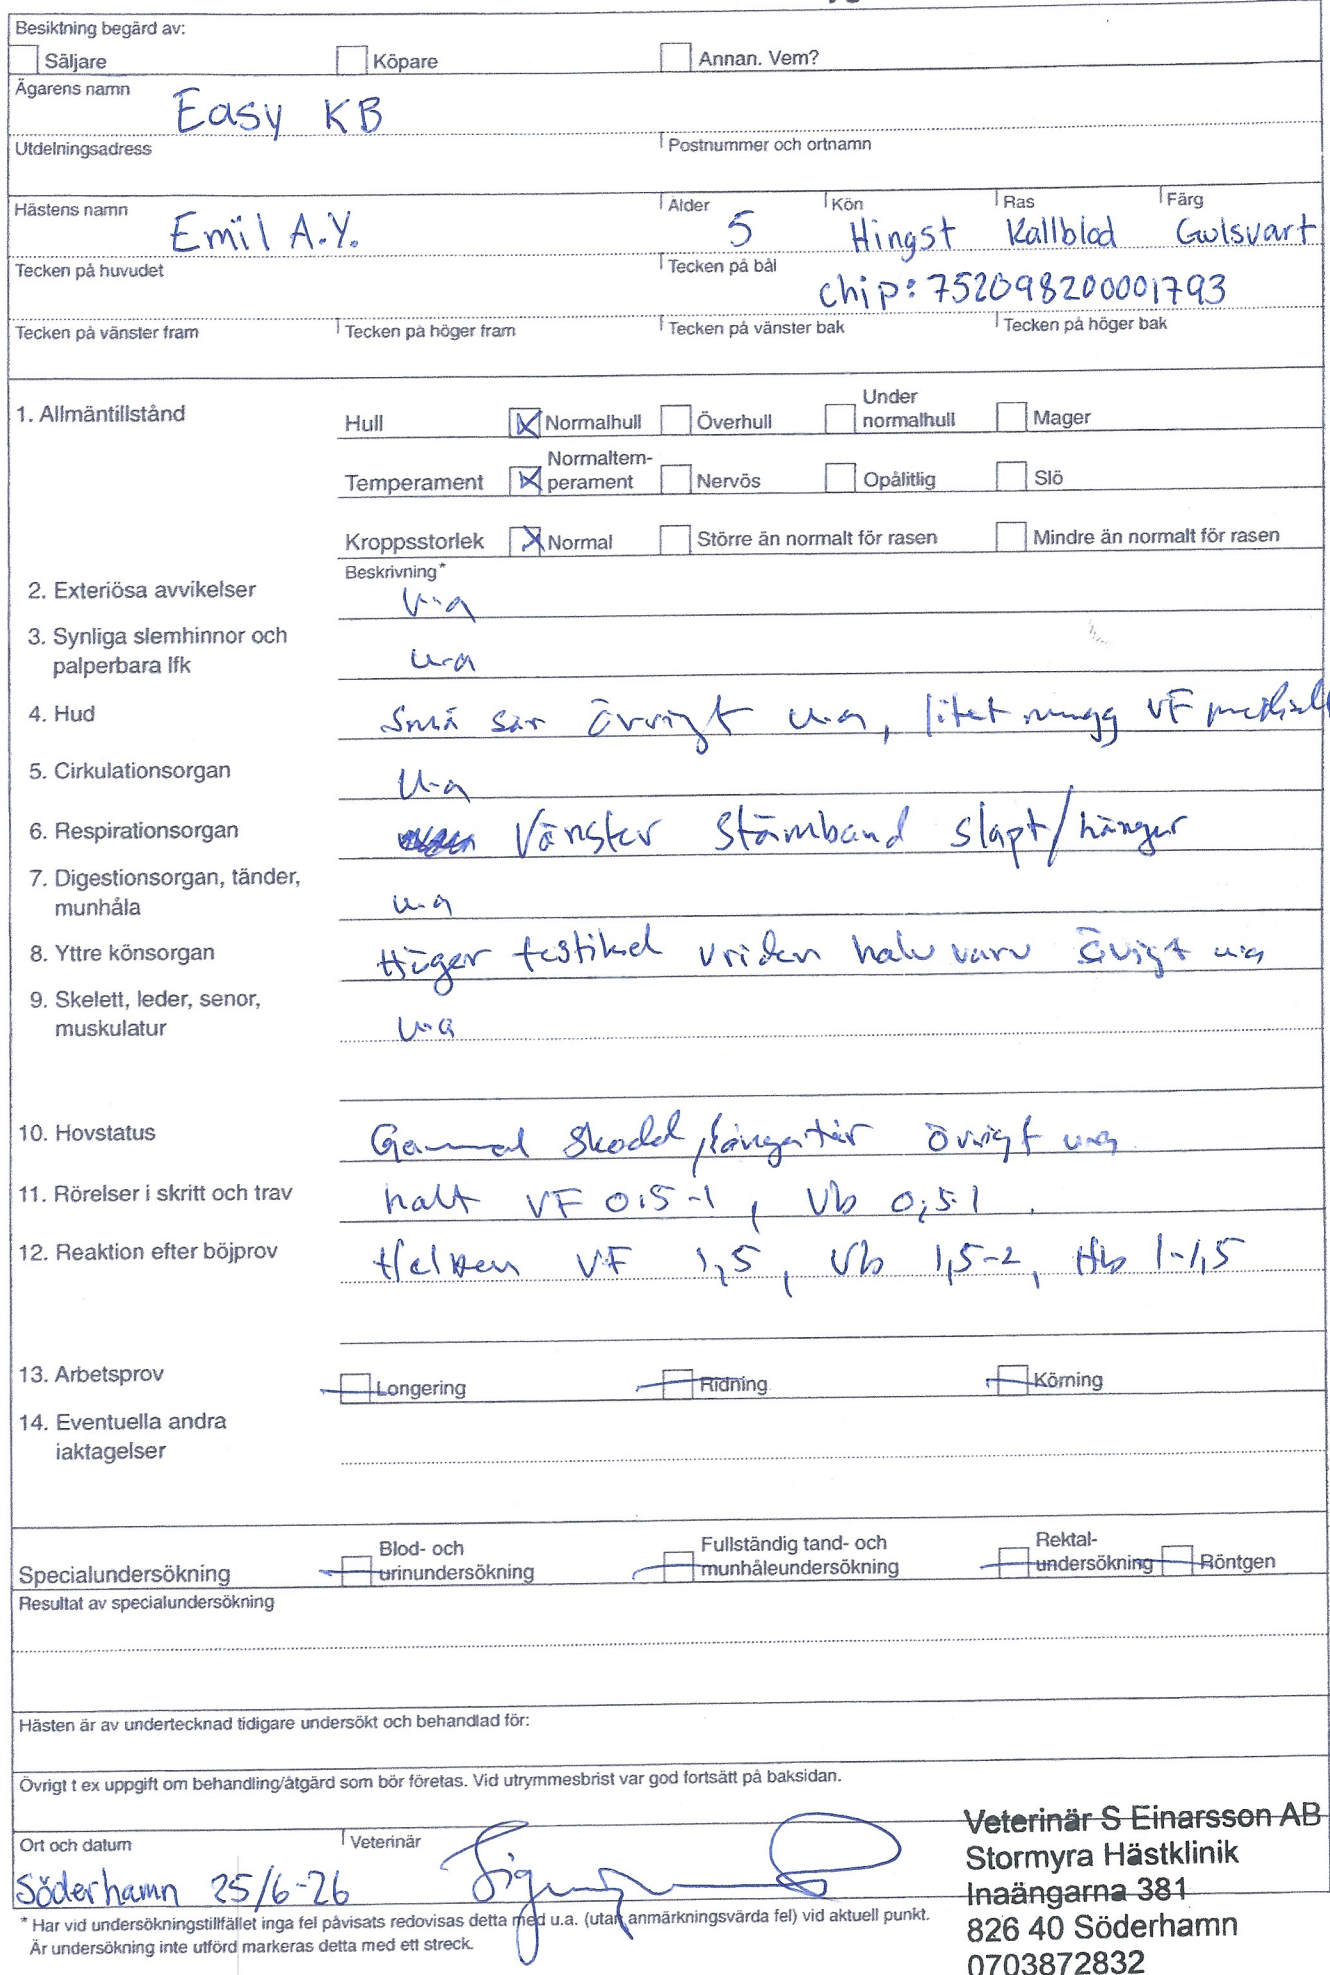 Besiktning begärd av:
Säljare Köpare Annan. Vem?
Ägarens namn Easy KB
Utdelningsadress Postnummer och ortnamn
Hästens namn Emil A.Y. Ålder 5 Kön Hingst Ras Kallblod Färg Gulsvart
Tecken på huvudet Tecken på bål chip: 752098200001793
Tecken på vänster fram Tecken på höger fram Tecken på vänster bak Tecken på höger bak
1. Allmäntillstånd
Hull Normalhull Överhull Under normalhull Mager
Temperament Normaltem-perament Nervös Opålitlig Slö
Kroppsstorlek Normal Större än normalt för rasen Mindre än normalt för rasen
Beskrivning*
2. Exteriösa avvikelser u-a
3. Synliga slemhinnor och
palperbara lfk u-a
4. Hud Små sår övrigt u-a, litet mugg VF
5. Cirkulationsorgan u-a
6. Respirationsorgan Vänster Stämband slapt/hänger
7. Digestionsorgan, tänder,
munhåla u-a
8. Yttre könsorgan Höger testikel vriden halv varv övigt ua
9. Skelett, leder, senor,
muskulatur u-a
10. Hovstatus Gammal skodd, övrigt ua
11. Rörelser i skritt och trav halt VF 0,5-1, Vb 0,5-1.
12. Reaktion efter böjprov VF 1,5, Vb 1,5-2, Hb 1-1,5
13. Arbetsprov Longering Ridning Körning
14. Eventuella andra
iaktagelser
Specialundersökning Blod- och urinundersökning Fullständig tand- och munhåleundersökning Rektal-undersökning Röntgen
Resultat av specialundersökning
Hästen är av undertecknad tidigare undersökt och behandlad för:
Övrigt t ex uppgift om behandling/åtgärd som bör företas. Vid utrymmesbrist var god fortsätt på baksidan.
Ort och datum Veterinär
Söderhamn 25/6-26
Veterinär S Einarsson AB
Stormyra Hästklinik
Inaängarna 381
826 40 Söderhamn
0703872832
* Har vid undersökningstillfället inga fel påvisats redovisas detta med u.a. (utan anmärkningsvärda fel) vid aktuell punkt.
Är undersökning inte utförd markeras detta med ett streck.